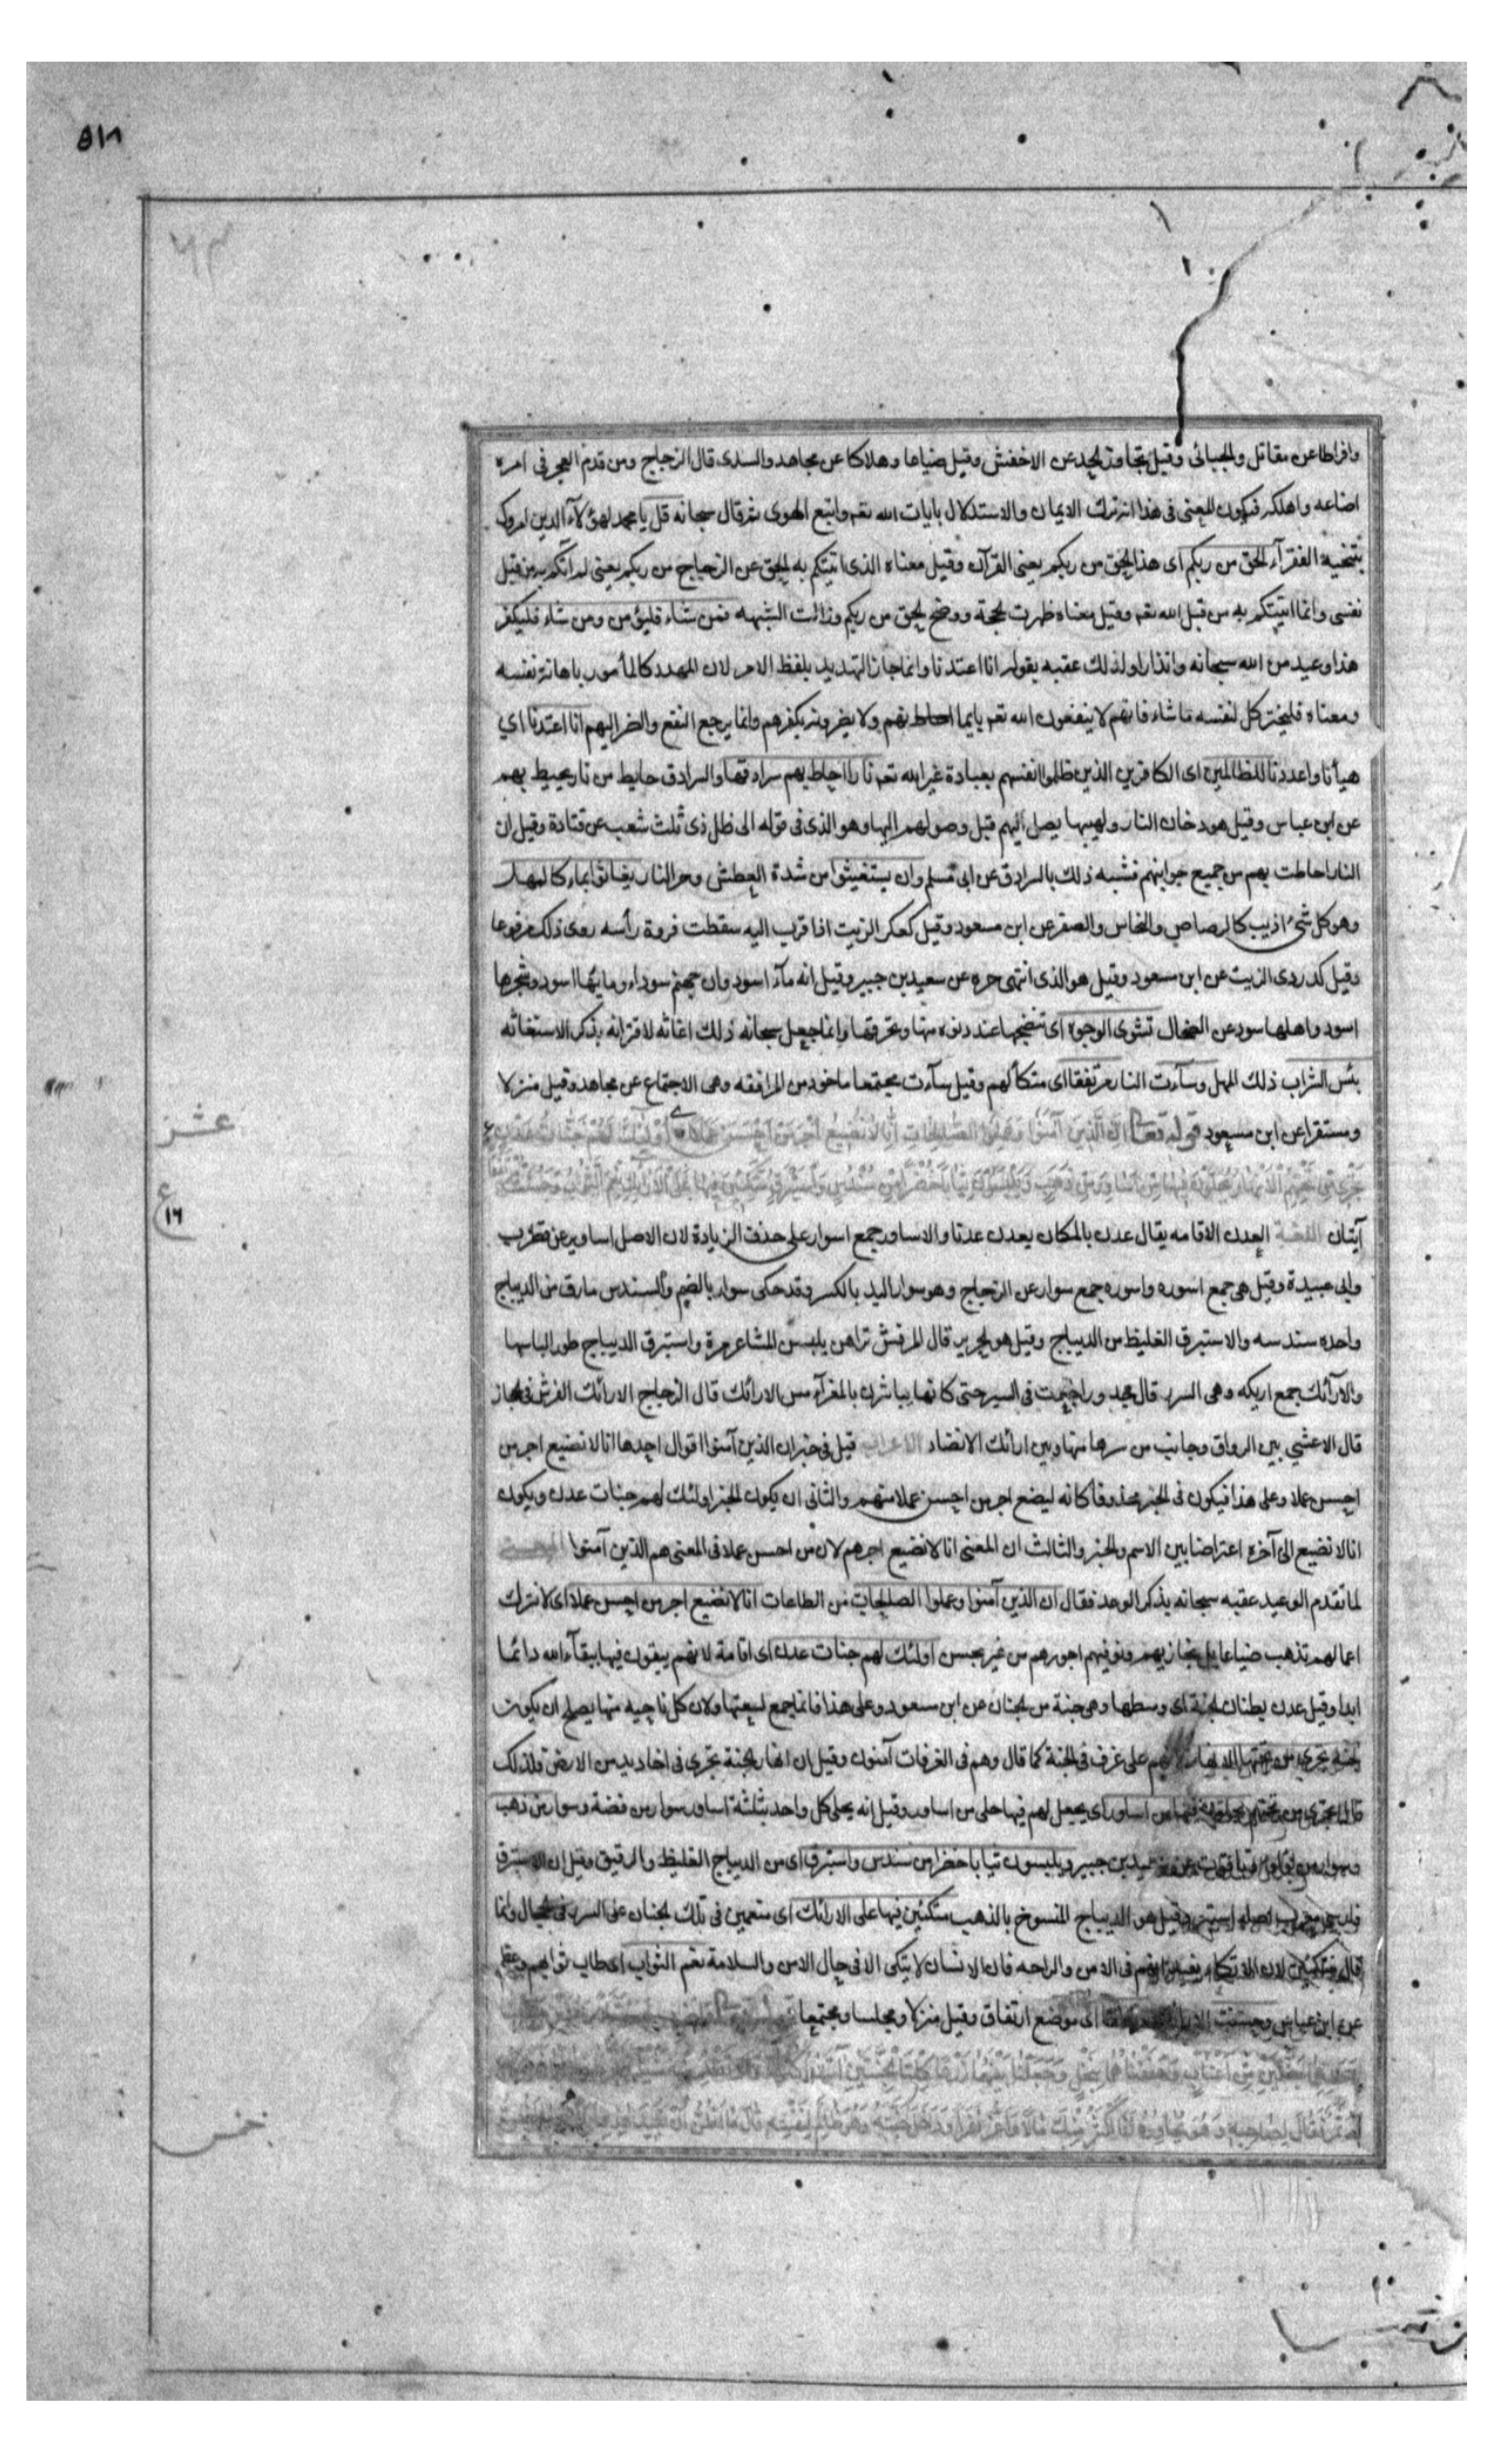 وافراطا عن مقاتل والجبائي وقيل تجاوز الحد عن الاخفش وقيل ضياعا وهلاكا عن مجاهد والسدى قال الزجاج ومن قدم العجز فى امره
اضاعه واهلكه فيكون المعنى فى هذا انه ترك الايمان والاستدلال بايات الله تعه واتبع الهوى ثم قال سبحانه قل يا محمد لهؤلآء الذين امروك
بتنحية الفقرآء الحق من ربكم اى هذا الحق من ربكم يعنى القرآن وقيل معناه الذى اتيتكم به الحق عن الزجاج من ربكم يعنى لم آتكم به من قبل
نفسى وانما اتيتكم به من قبل الله تعه وقيل معناه ظهرت الحجة ووضح الحق من ربكم وزالت الشبهه فمن شاء فليؤمن ومن شاء فليكفر
هذا وعيد من الله سبحانه وانذار ولذلك عقبه بقوله انا اعتدنا وانما جاز التهديد بلفظ الامر لان المهدد كالمأمور باهانة نفسه
ومعناه فليختر كل لنفسه ما شاء فانهم لا ينفعون الله تعه بايمانهم ولا يضرونه بكفرهم وانما يرجع النفع والضر اليهم انا اعتدنا اي
هيأنا واعددنا للظالمين اى الكافرين الذين ظلموا انفسهم بعبادة غير الله تعه نارا احاط بهم سرادقها والسرادق حايط من نار يحيط بهم
عن ابن عباس وقيل هو دخان النار ولهيبها يصل اليهم قبل وصولهم اليها وهو الذى فى قوله الى ظل ذى ثلث شعب عن قتادة وقيل ان
النار احاطت بهم من جميع جوانبهم فشبه ذلك بالسرادق عن ابى مسلم وان يستغيثوا من شدة العطش وحر النار يغاثوا بماء كالمهل
وهو كل شئ اذيب كالرصاص والنحاس والصفر عن ابن مسعود وقيل كعكر الزيت اذا قرب اليه سقطت فروة رأسه روى ذلك مرفوعا
وقيل كدردى الزيت عن ابن مسعود وقيل هو الذى انتهى حره عن سعيد بن جبير وقيل انه مآء اسود وان جهنم سوداء وماؤها اسود وشجرها
اسود واهلها سود عن الضحاك تشوى الوجوه اى تنضجها عند دنوه منها وتحرقها وانما جعل سبحانه ذلك اغاثه لاقترانه بذكر الاستغاثه
بئس الشراب ذلك المهل وسآءت النار مرتفقا اى متكأ لهم وقيل سآءت مجتمعا ماخوذ من المرافقه وهى الاجتماع عن مجاهد وقيل منزلا
ومستقرا عن ابن مسعود قوله تعالى اِنَّ الَّذِينَ آمَنُوا وَعَمِلُوا الصَّالِحَاتِ اِنَّا لَا نُضِيعُ اَجْرَ مَنْ اَحْسَنَ عَمَلًا اُولٰئِكَ لَهُمْ جَنَّاتُ عَدْنٍ
تَجْرِي مِنْ تَحْتِهِمُ الْاَنْهَارُ يُحَلَّوْنَ فِيهَا مِنْ اَسَاوِرَ مِنْ ذَهَبٍ وَيَلْبَسُونَ ثِيَابًا خُضْرًا مِنْ سُنْدُسٍ وَاِسْتَبْرَقٍ مُتَّكِئِينَ فِيهَا عَلَى الْاَرَائِكِ نِعْمَ الثَّوَابُ وَحَسُنَتْ مُرْتَفَقًا
آيتان اللغـة العدن الاقامه يقال عدن بالمكان يعدن عدنا والاساور جمع اسوار على حذف الزيادة لان الاصل اساوير عن قطرب
وابى عبيدة وقيل هى جمع اسوره واسوره جمع سوار عن الزجاج وهو سوار اليد بالكسر وقد حكى سوار بالضم والسندس مارق من الديباج
واحده سندسه والاستبرق الغليظ من الديباج وقيل هو الحرير قال المرقش تراهن يلبسن المشاعر مرة واستبرق الديباج طورا لباسها
والآرآئك جمع اريكه وهى السرر قال خدودا جفت فى السير حتى كانها يباشرن بالمعزآء مس الارائك قال الزجاج الارائك الفرش فى الحجال
قال الاعشي بين الرواق وجانب من سرها منها وبين ارائك الانضاد الاعراب قيل فى خبر ان الذين آمنوا اقوال احدها انا لا نضيع اجر من
احسن عملا وعلى هذا فيكون فى الخبر محذوفا كانه ليضع اجر من احسن عملا منهم والثانى ان يكون الخبر اولئك لهم جنات عدن ويكون
انا لا نضيع الى آخره اعتراضا بين الاسم والخبر والثالث ان المعنى انا لا نضيع اجرهم لان من احسن عملا فى المعنى هم الذين آمنوا المعنـى
لما تقدم الوعيد عقبه سبحانه بذكر الوعد فقال ان الذين آمنوا وعملوا الصالحات من الطاعات انا لا نضيع اجر من احسن عملا اى لا نترك
اعمالهم تذهب ضياعا بل نجازيهم ونوفيهم اجورهم من غير بخس اولئك لهم جنات عدن اى اقامة لانهم يبقون فيها ببقآء الله دائما
ابدا وقيل عدن بطنان الجنة اى وسطها وهى جنة من الجنان عن ابن مسعود وعلى هذا فانما جمع لسعتها ولان كل ناحيه منها يصلح ان يكون
جنة تجرى من تحتهم الانهار لانهم على غرف فى الجنة كما قال وهم فى الغرفات آمنون وقيل ان انهار الجنة تجرى فى اخاديد من الارض فلذلك
قال تجرى من تحتهم يحلون فيها من اساور اى يجعل لهم فيها حلى من اساور وقيل انه يحلى كل واحد بثلثة اساور سوار من فضة وسوار من ذهب
وسوار من لؤلؤ وياقوت عن سعيد بن جبير ويلبسون ثيابا خضرا من سندس واستبرق اى من الديباج الغليظ والرقيق وقيل ان الاستبرق
فارسى معرب اصله استبره وقيل هو الديباج المنسوخ بالذهب متكئين فيها على الارائك اى متنعمين فى تلك الجنان على السرر فى الحجال وانما
قال متكئين لان الاتكاء يفيد انهم فى الامن والراحه فان الانسان لا يتكى الا فى حال الامن والسلامة نعم الثواب اى طاب ثوابهم وعظم
عن ابن عباس وحسنت الارائك مرتفقا اى موضع ارتفاق وقيل منزلا ومجلسا ومجتمعا
جَنَّتَيْنِ مِنْ اَعْنَابٍ وَحَفَفْنَاهُمَا بِنَخْلٍ وَجَعَلْنَا بَيْنَهُمَا زَرْعًا كِلْتَا الْجَنَّتَيْنِ آتَتْ اُكُلَهَا
لَهُ ثَمَرٌ فَقَالَ لِصَاحِبِهِ وَهُوَ يُحَاوِرُهُ اَنَا اَكْثَرُ مِنْكَ مَالًا وَاَعَزُّ نَفَرًا وَدَخَلَ جَنَّتَهُ وَهُوَ ظَالِمٌ لِنَفْسِهِ قَالَ مَا اَظُنُّ اَنْ تَبِيدَ هٰذِهِ
عشر
ع
١٦
خمس